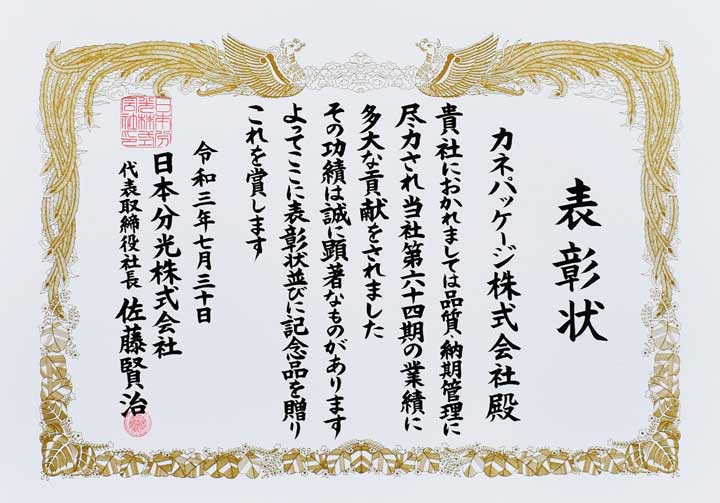 表彰状
カネパッケージ株式会社殿
貴社におかれましては品質・納期管理に
尽力され当社第六十四期の業績に
多大な貢献をされました
その功績は誠に顕著なものがあります
よってここに表彰状並びに記念品を贈り
これを賞します
令和三年七月三十日
日本分光株式会社
代表取締役社長 佐藤賢治